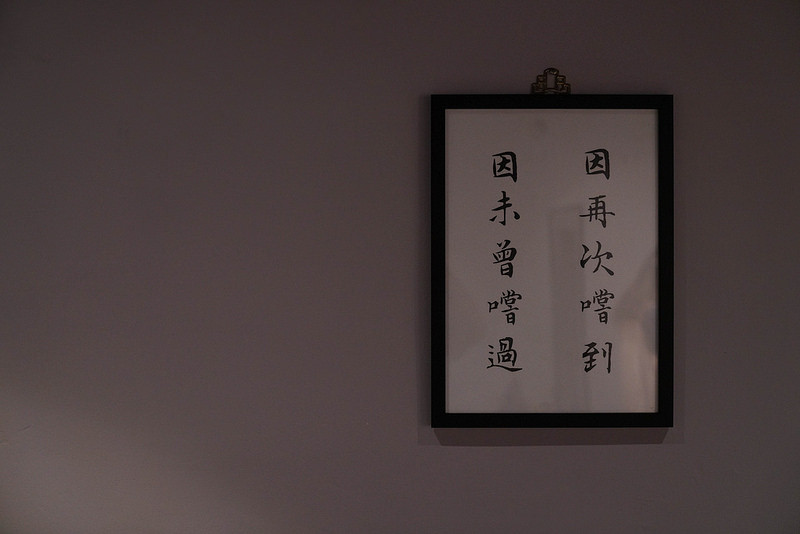 因再次嚐到
因未曾嚐過